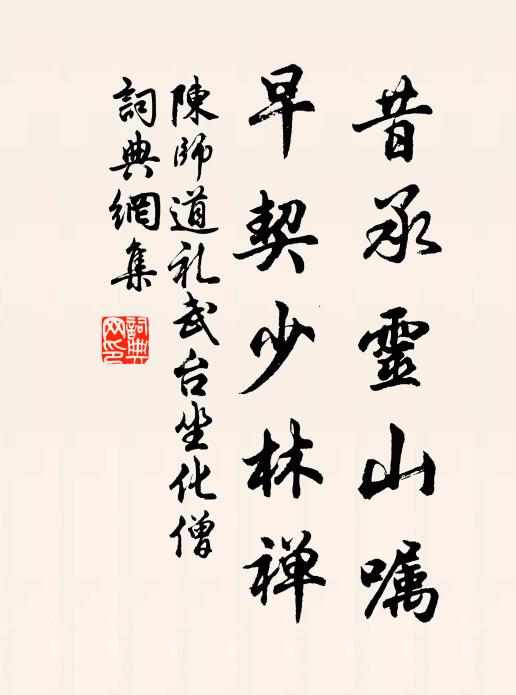 昔承靈山嘱
早契少林禅
陳師道礼武台坐化僧
詞典網集
詞典网印